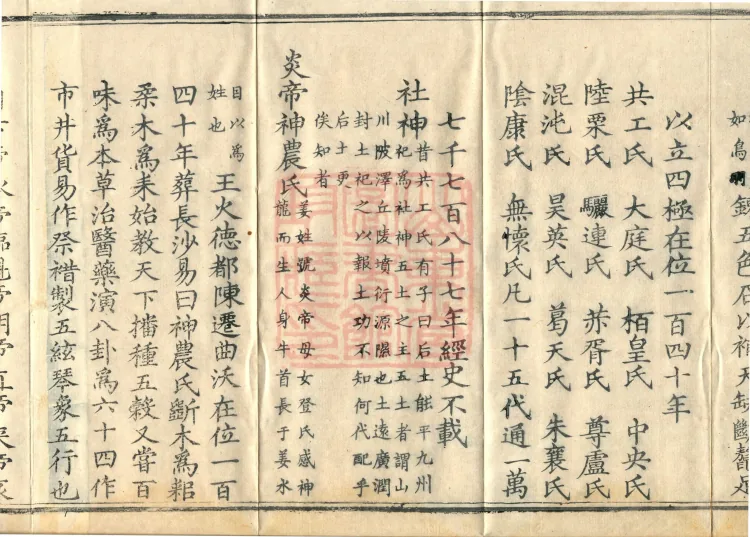 如鳥
鍊五色石以補天 斷鼇足
以立四極在位一百四十年
共工氏 大庭氏 栢皇氏 中央氏
陸栗氏 驪連氏 赤胥氏 尊盧氏
混沌氏 昊英氏 葛天氏 朱襄氏
陰康氏 無懷氏凡一十五代通一萬
七千七百八十七年經史不載
社神
昔共工氏有子曰后土能平九州
祀爲社神五土之主五土者謂山
川陂澤丘陵墳衍源隰也土遠廣潤
封土祀之以報土功不知何代配乎
后土更
俟知者
炎帝神農氏
姜姓號炎帝母女登氏感神
龍而生人身牛首長于姜水
因以爲
姓也
王火德都陳遷曲沃在位一百
四十年葬長沙易曰神農氏斵木爲耜
柔木爲耒始教天下播種五穀又嘗百
味爲本草治醫藥演八卦爲六十四作
市井貨易作祭䄍製五絃琴象五行也